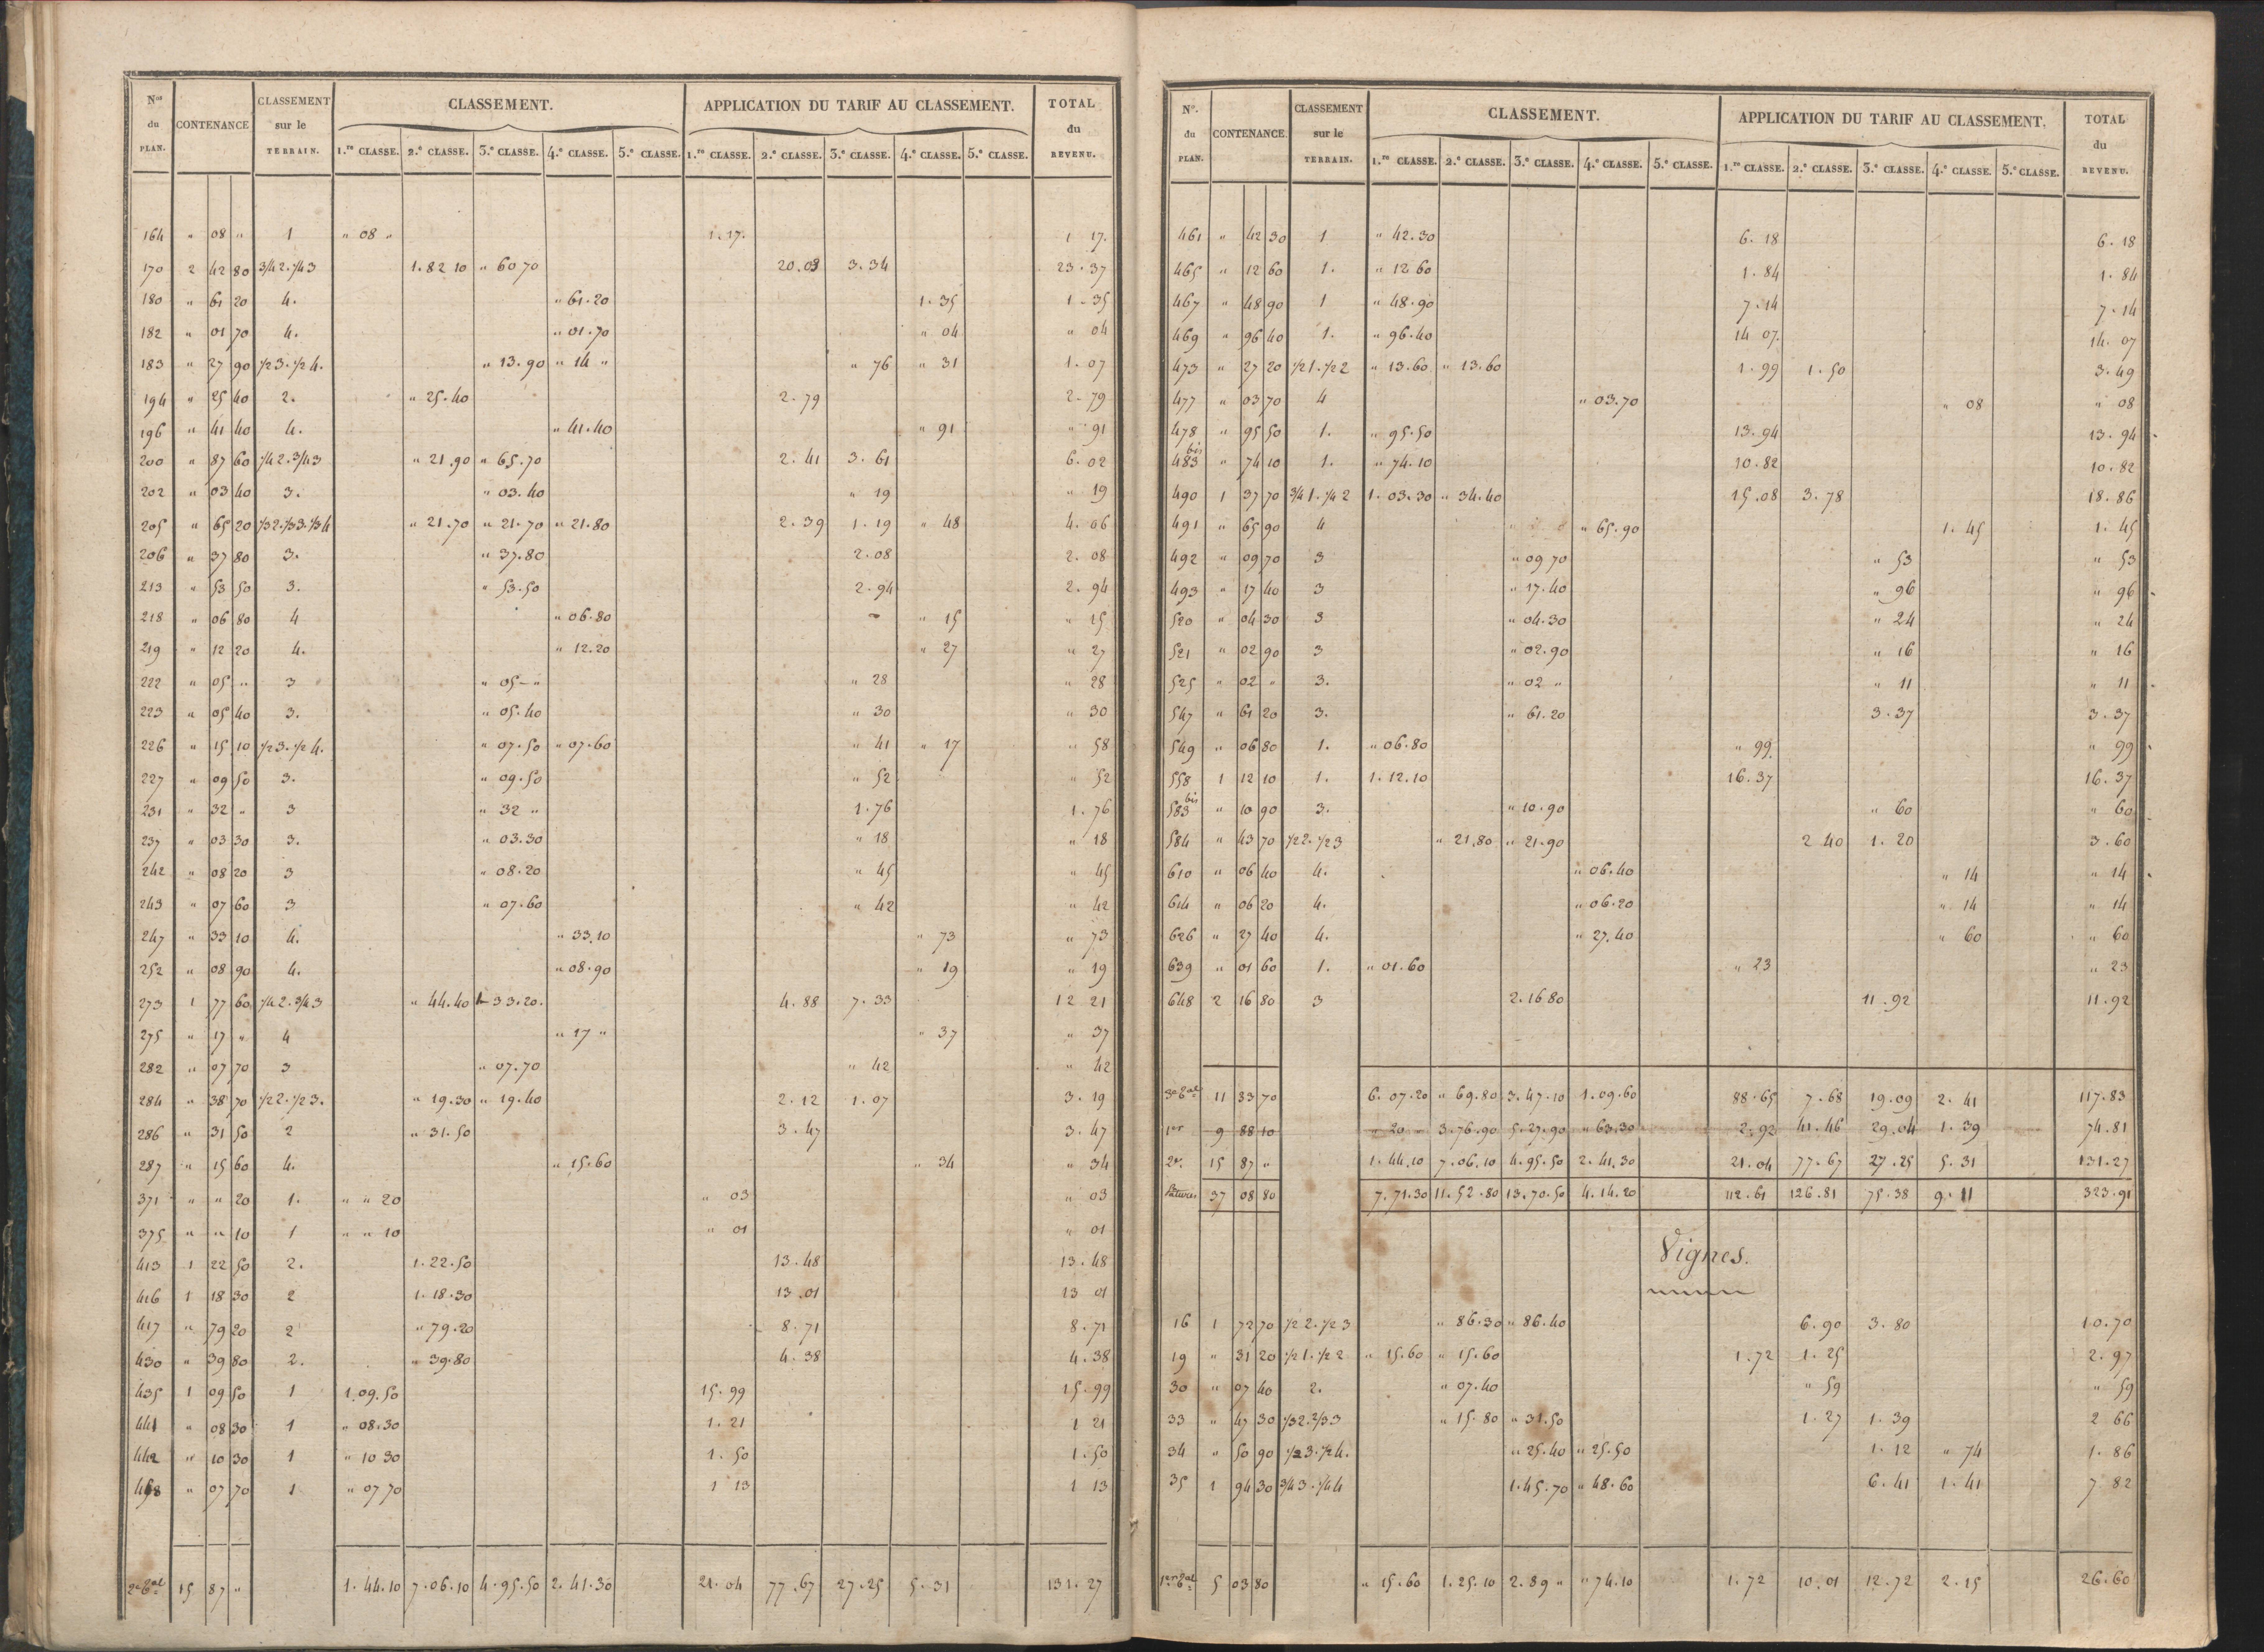 Nos du PLAN. CONTENANCE CLASSEMENT sur le TERRAIN. CLASSEMENT. APPLICATION DU TARIF AU CLASSEMENT. TOTAL du REVENU.
1.re CLASSE. 2.e CLASSE. 3.e CLASSE. 4.e CLASSE. 5.e CLASSE. 1.re CLASSE. 2.e CLASSE. 3.e CLASSE. 4.e CLASSE. 5.e CLASSE.
164 " 08 " 1 " 08 " 1.17. 1 17.
170 2 42 80 3/4 2. 1/4 3 1.82 10 " 60 70 20.03 3.34 23.37
180 " 61 20 4. " 61.20 1.35 1-35
182 " 01 70 4. " 01.70 " 04 " 04
183 " 27 90 1/2 3. 1/2 4. " 13.90 " 14 " " 76 " 31 1.07
194 " 25 40 2. " 25.40 2.79 2-79
196 " 41 40 4. " 41.40 " 91 " 91
200 " 87 60 1/4 2. 3/4 3 " 21.90 " 65.70 2.41 3.61 6.02
202 " 03 40 3. " 03.40 " 19 " 19
205 " 65 20 1/3 2. 1/3 3. 1/3 4 " 21.70 " 21.70 " 21.80 2.39 1.19 " 48 4.06
206 " 37 80 3. " 37.80 2.08 2.08
213 " 53 50 3. " 53.50 2.94 2.94
218 " 06 80 4 " 06.80 " 15 " 15
219 " 12 20 4. " 12.20 " 27 " 27
222 " 05 " 3 " 05-" " 28 " 28
223 " 05 40 3. " 05.40 " 30 " 30
226 " 15 10 1/2 3. 1/2 4. " 07.50 " 07.60 " 41 " 17 " 58
227 " 09 50 3. " 09.50 " 52 " 52
231 " 32 " 3 " 32 " 1.76 1.76
237 " 03 30 3. " 03.30 " 18 " 18
242 " 08 20 3 " 08.20 " 45 " 45
243 " 07 60 3 " 07.60 " 42 " 42
247 " 33 10 4. " 33.10 " 73 " 73
252 " 08 90 4. " 08.90 " 19 " 19
273 1 77 60 1/4 2. 3/4 3 " 44.40 1-33.20. 4.88 7.33 12 21
275 " 17 " 4 " 17 " " 37 " 37
282 " 07 70 3 " 07.70 " 42 " 42
284 " 38 70 1/2 2. 1/2 3. " 19.30 " 19.40 2.12 1.07 3.19
286 " 31 50 2 " 31.50 3.47 3.47
287 " 15 60 4. " 15.60 " 34 " 34
371 " " 20 1. " " 20 " 03 " 03
375 " " 10 1 " " 10 " 01 " 01
413 1 22 50 2. 1.22.50 13.48 13.48
416 1 18 30 2 1.18.30 13.01 13 01
417 " 79 20 2 " 79.20 8.71 8.71
430 " 39 80 2. " 39.80 4.38 4.38
435 1 09 50 1 1.09.50 15.99 15.99
441 " 08 30 1 " 08.30 1.21 1 21
442 " 10 30 1 " 10 30 1.50 1.50
458 " 07 70 1 " 07 70 1 13 1 13
2e Tal 15 87 " 1.44.10 7.06.10 4.95.50 2.41.30 21.04 77.67 27.25 5.31 131.27
No. du PLAN. CONTENANCE. CLASSEMENT sur le TERRAIN. CLASSEMENT. APPLICATION DU TARIF AU CLASSEMENT. TOTAL du REVENU.
1.re CLASSE. 2.e CLASSE. 3.e CLASSE. 4.e CLASSE. 5.e CLASSE. 1.re CLASSE. 2.e CLASSE. 3.e CLASSE. 4.e CLASSE. 5.e CLASSE.
461 " 42 30 1 " 42.30 6.18 6.18
465 " 12 60 1. " 12 60 1.84 1.84
467 " 48 90 1 " 48.90 7.14 7.14
469 " 96 40 1. " 96.40 14 07. 14.07
473 " 27 20 1/2 1. 1/2 2 " 13.60 " 13.60 1.99 1.50 3.49
477 " 03 70 4 " 03.70 " 08 " 08
478 " 95 50 1. " 95.50 13.94 13.94
483 bis " 74 10 1. " 74.10 10.82 10.82
490 1 37 70 3/4 1. 1/4 2 1.03.30 " 34.40 15.08 3.78 18.86
491 " 65 90 4 " 65.90 1.45 1.45
492 " 09 70 3 " 09 70 " 53 " 53
493 " 17 40 3 " 17.40 " 96 " 96
520 " 04 30 3 " 04.30 " 24 " 24
521 " 02 90 3 " 02.90 " 16 " 16
525 " 02 " 3. " 02 " " 11 " 11
547 " 61 20 3. " 61.20 3.37 3.37
549 " 06 80 1. " 06.80 " 99. " 99
558 1 12 10 1. 1.12.10 16.37 16.37
583 bis " 10 90 3. " 10.90 " 60 " 60
584 " 43 70 1/2 2. 1/2 3 " 21.80 " 21.90 2 40 1.20 3.60
610 " 06 40 4. " 06.40 " 14 " 14
614 " 06 20 4. " 06.20 " 14 " 14
626 " 27 40 4. " 27.40 " 60 " 60
639 " 01 60 1. " 01.60 " 23 " 23
648 2 16 80 3 2.16 80 11.92 11.92
3e Tal 11 33 70 6.07.20 " 69.80 3.47.10 1.09.60 88.65 7.68 19.09 2.41 117.83
1er 9 88 10 " 20 " 3.76.90 5.27.90 " 63.30 2.92 41.46 29.04 1.39 74.81
2e. 15 87 " 1.44.10 7.06.10 4.95.50 2.41.30 21.04 77.67 27.25 5.31 131.27
Pâtures 37 08 80 7.71.30 11.52.80 13.70.50 4.14.20 112.61 126.81 75.38 9.11 323.91
Vignes.
16 1 72 70 1/2 2. 1/2 3 " 86.30 " 86.40 6.90 3.80 10.70
19 " 31 20 1/2 1. 1/2 2 " 15.60 " 15.60 1.72 1.25 2.97
30 " 07 40 2. " 07.40 " 59 " 59
33 " 47 30 1/3 2. 2/3 3 " 15.80 " 31.50 1.27 1.39 2 66
34 " 50 90 1/2 3. 1/2 4. " 25.40 " 25.50 1.12 " 74 1.86
35 1 94 30 3/4 3. 1/4 4 1.45.70 " 48.60 6.41 1.41 7 82
1er Tal 5 03 80 " 15.60 1.25.10 2.89 " " 74.10 1.72 10.01 12.72 2.15 26.60